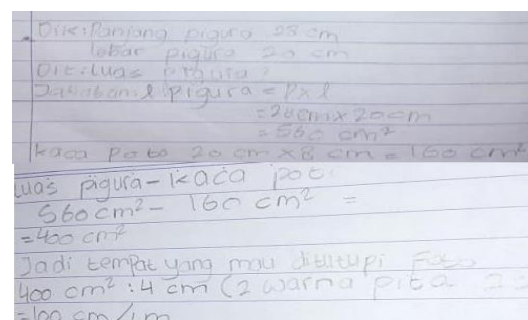 Dik: Panjang pigura 28 cm
lebar pigura 20 cm
Dit: Luas pigura?
Jawaban L pigura = P x l
= 28 cm x 20 cm
= 560 cm²
kaca poto 20 cm x 8 cm = 160 cm²
Luas pigura - kaca pot
560 cm² - 160 cm² =
= 400 cm²
Jadi tempat yang mau ditutupi Foto
400 cm² : 4 cm (2 warna pita
= 100 cm / 1 m